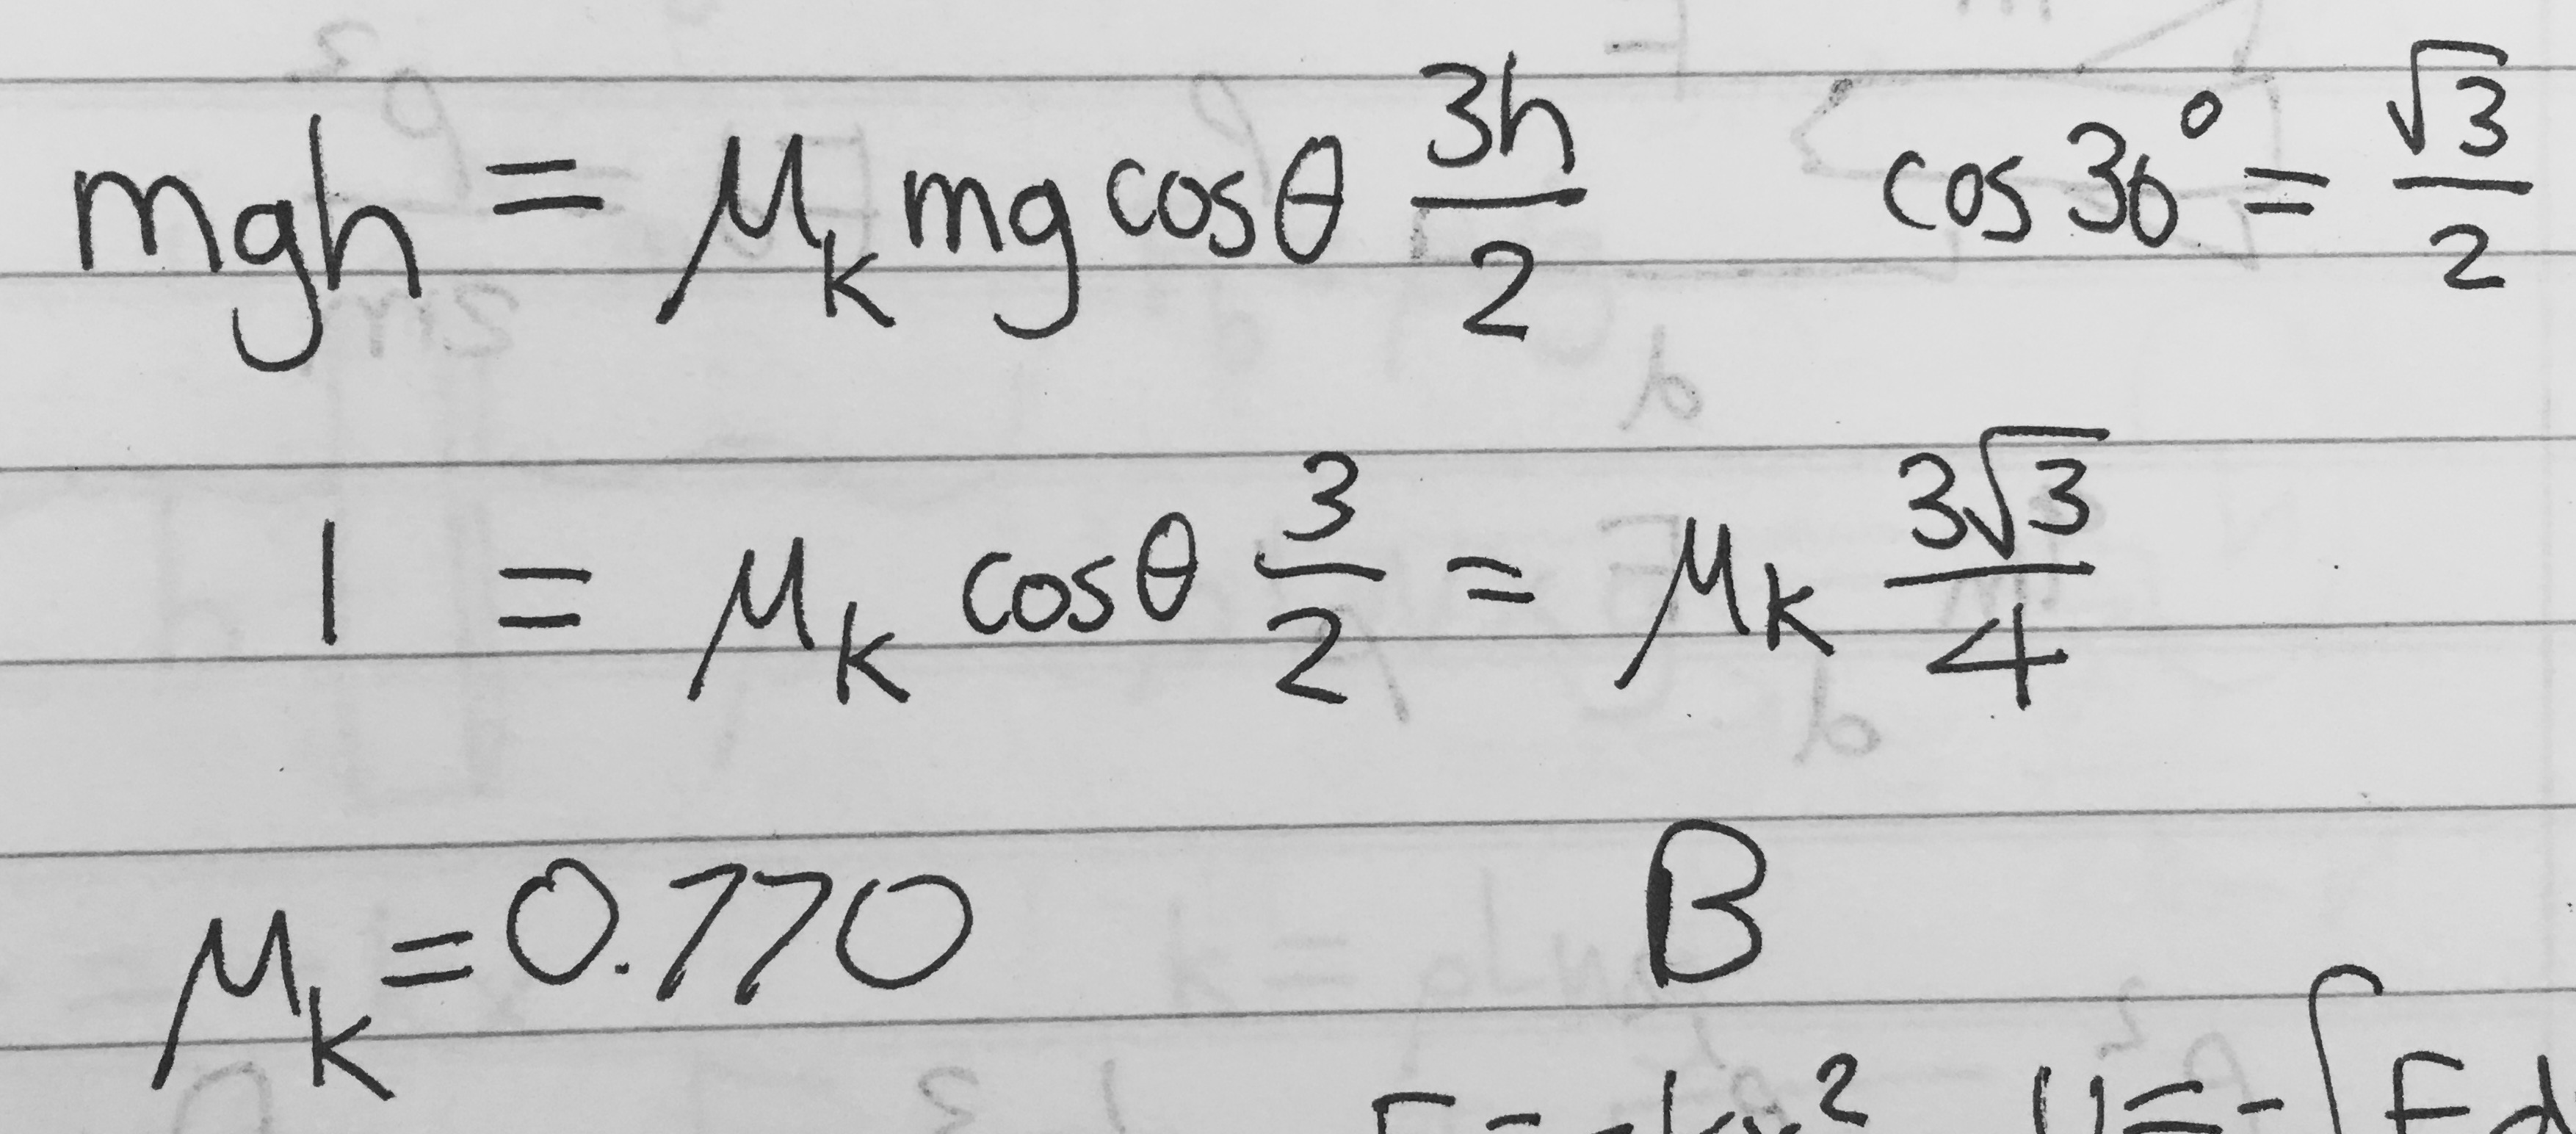 mgh = μₖ mg cosθ 3h/2 cos 30° = √3/2
1 = μₖ cosθ 3/2 = μₖ 3√3/4
μₖ = 0.770 B